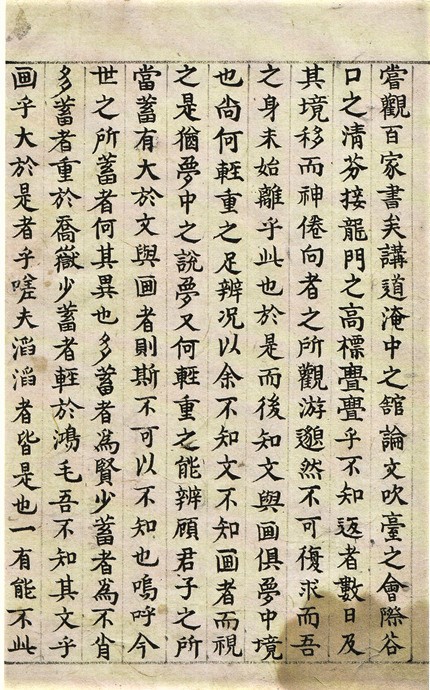 嘗觀百家書矣講道淹中之舘論文吹臺之會際谷
口之清芬接龍門之高標亹亹乎不知返者數日及
其境移而神倦向者之所觀游邈然不可復求而吾
之身未始離乎此也於是而後知文與画俱夢中境
也尚何輊重之足辨况以余不知文不知画者而視
之是猶夢中之説夢又何輊重之能辨顧君子之所
當蓄有大於文與画者則斯不可以不知也嗚呼今
世之所蓄者何其異也多蓄者為賢少蓄者為不肖
多蓄者重於喬嶽少蓄者輊於鴻毛吾不知其文乎
画乎大於是者乎嗟夫滔滔者皆是也一有能不此